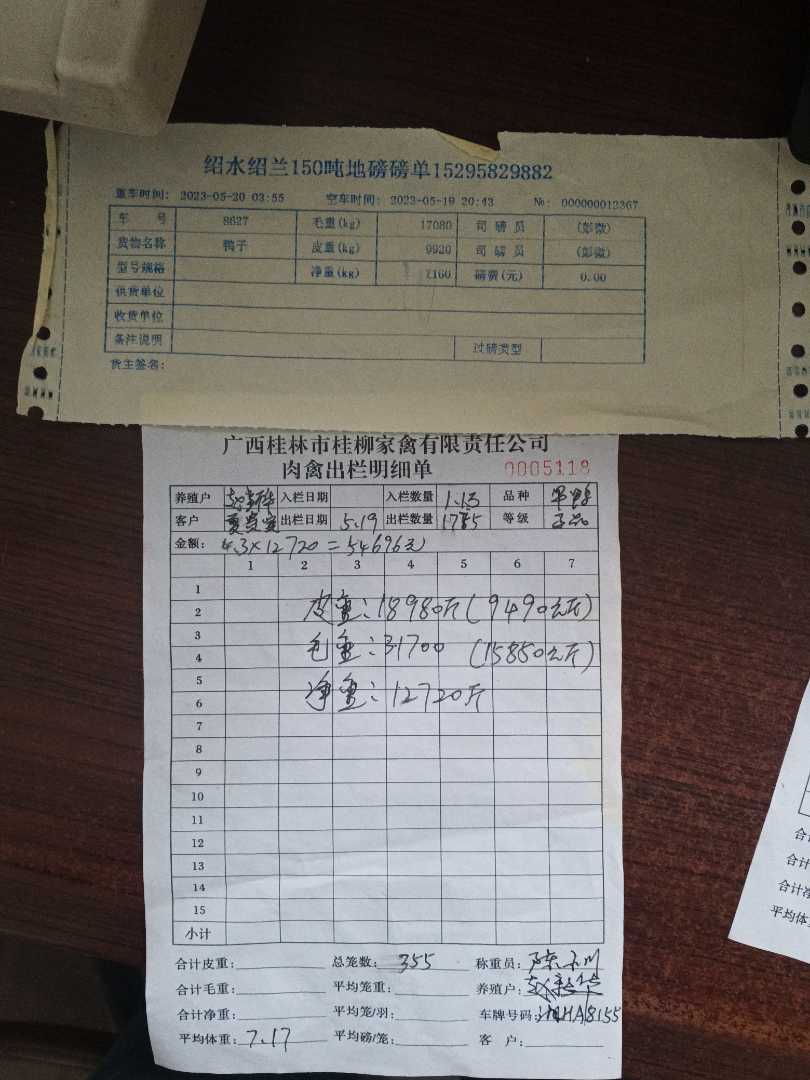 绍水绍兰150吨地磅磅单15295829882
重车时间: 2023-05-20 03:55 空车时间: 2023-05-19 20:43 №: 000000012367
车 号 8627 毛重(kg) 17080 司磅员 (彭微)
货物名称 鸭子 皮重(kg) 9920 司磅员 (彭微)
型号规格 净重(kg) 7160 磅费(元) 0.00
供货单位
收货单位
备注说明 过磅类型
货主签名:
广西桂林市桂柳家禽有限责任公司
肉禽出栏明细单 0005118
养殖户 入栏日期 入栏数量 1.13 品种
客户 出栏日期 5.19 出栏数量 等级
金额: 4.3×12720=54696元
1 2 3 4 5 6 7
1
2 皮重:18980斤(9490公斤)
3
4 毛重:31700 (15850公斤)
5
6 净重:12720斤
7
8
9
10
11
12
13
14
15
小计
合计皮重: 总笼数: 355 称重员:
合计毛重: 平均笼重: 养殖户:
合计净重: 平均笼/羽: 车牌号码:
平均体重: 7.17 平均磅/笼: 客 户:
合计净
平均体